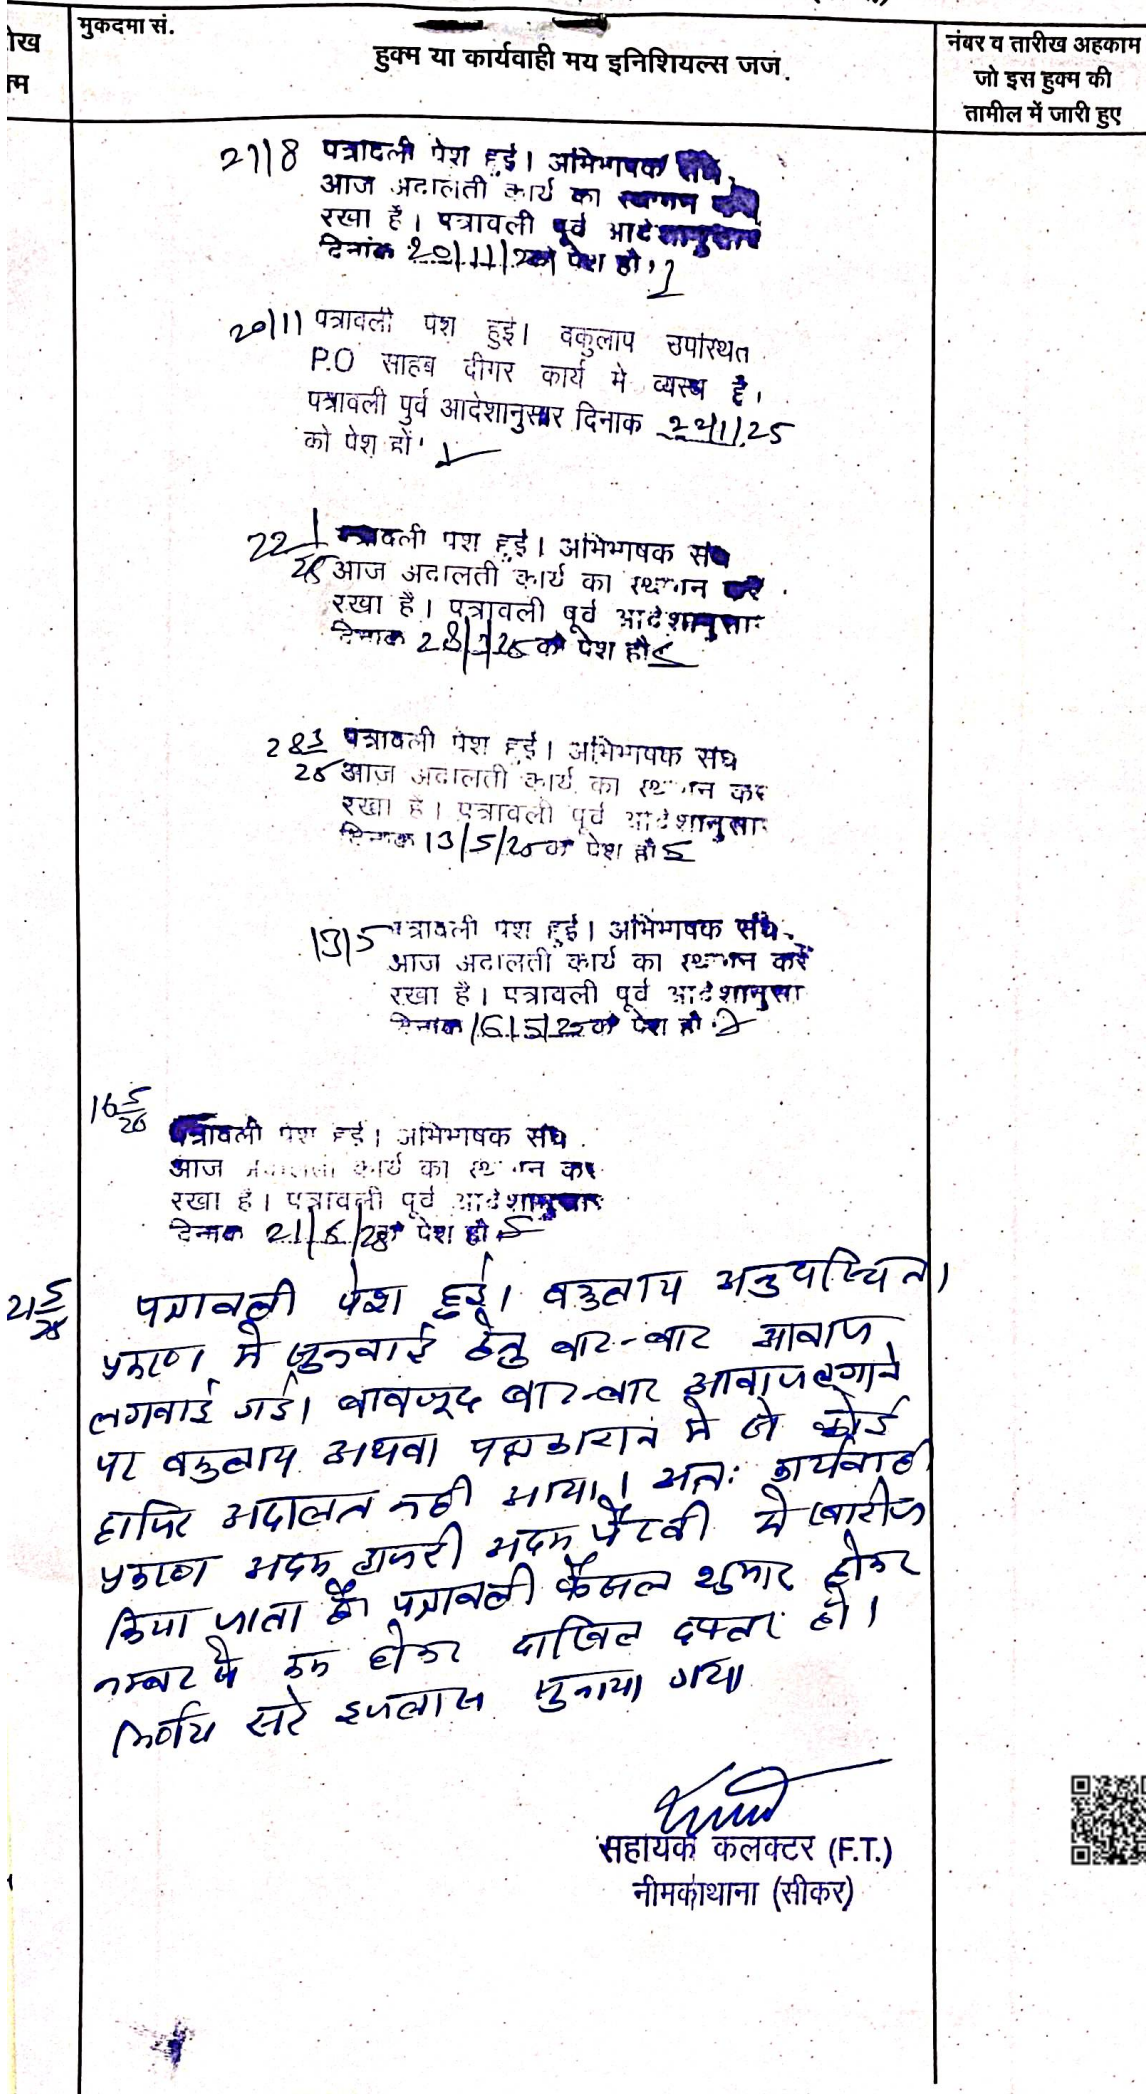 मुकदमा सं.
हुक्म या कार्यवाही मय इनिशियल्स जज.
नंबर व तारीख अहकाम
जो इस हुक्म की
तामील में जारी हुए
21/8 पत्रावली पेश हुई। अभिभाषक संघ
आज अदालती कार्य का स्थगन
रखा है। पत्रावली पूर्व आदेशानुसार
दिनांक 20/11/ को पेश हो।
20/11 पत्रावली पेश हुई। वकुलाय उपस्थित
P.O साहब दीगर कार्य मे व्यस्थ है।
पत्रावली पुर्व आदेशानुसार दिनाक 22/1/25
को पेश हों
22 1/25 पत्रावली पेश हुई। अभिभाषक संघ
आज अदालती कार्य का स्थगन कर
रखा है। पत्रावली पूर्व आदेशानुसार
दिनांक 28/3/25 को पेश हो
28 3/25 पत्रावली पेश हुई। अभिभाषक संघ
आज अदालती कार्य का स्थगन कर
रखा है। पत्रावली पूर्व आदेशानुसार
दिनांक 13/5/25 को पेश हो
13/5 पत्रावली पेश हुई। अभिभाषक संघ
आज अदालती कार्य का स्थगन करें
रखा है। पत्रावली पूर्व आदेशानुसा
दिनांक 16/5/25 को पेश हो
16 5/25
पत्रावली पेश हुई। अभिभाषक संघ
आज अदालती कार्य का स्थगन कर
रखा है। पत्रावली पूर्व आदेशानुसार
दिनांक 21/5/25 को पेश हो
21 5/25 पत्रावली पेश हुई। वकुलाय अनुपस्थित।
प्रकरण मे सुनवाई हेतु बार-बार आवाज
लगवाई गई। बावजूद बार-बार आवाज लगाने
पर वकुलाय अथवा पक्षकारान मे से कोई
हाजिर अदालत नही आया। अतः कार्यवाही
प्रकरण अदम हाजरी अदम पैरवी मे खारीज
किया जाता है। पत्रावली फैसल शुमार होकर
नम्बर से कम होकर दाखिल दफ्तर हो।
निर्णय सरे इजलास सुनाया गया
सहायक कलक्टर (F.T.)
नीमकाथाना (सीकर)